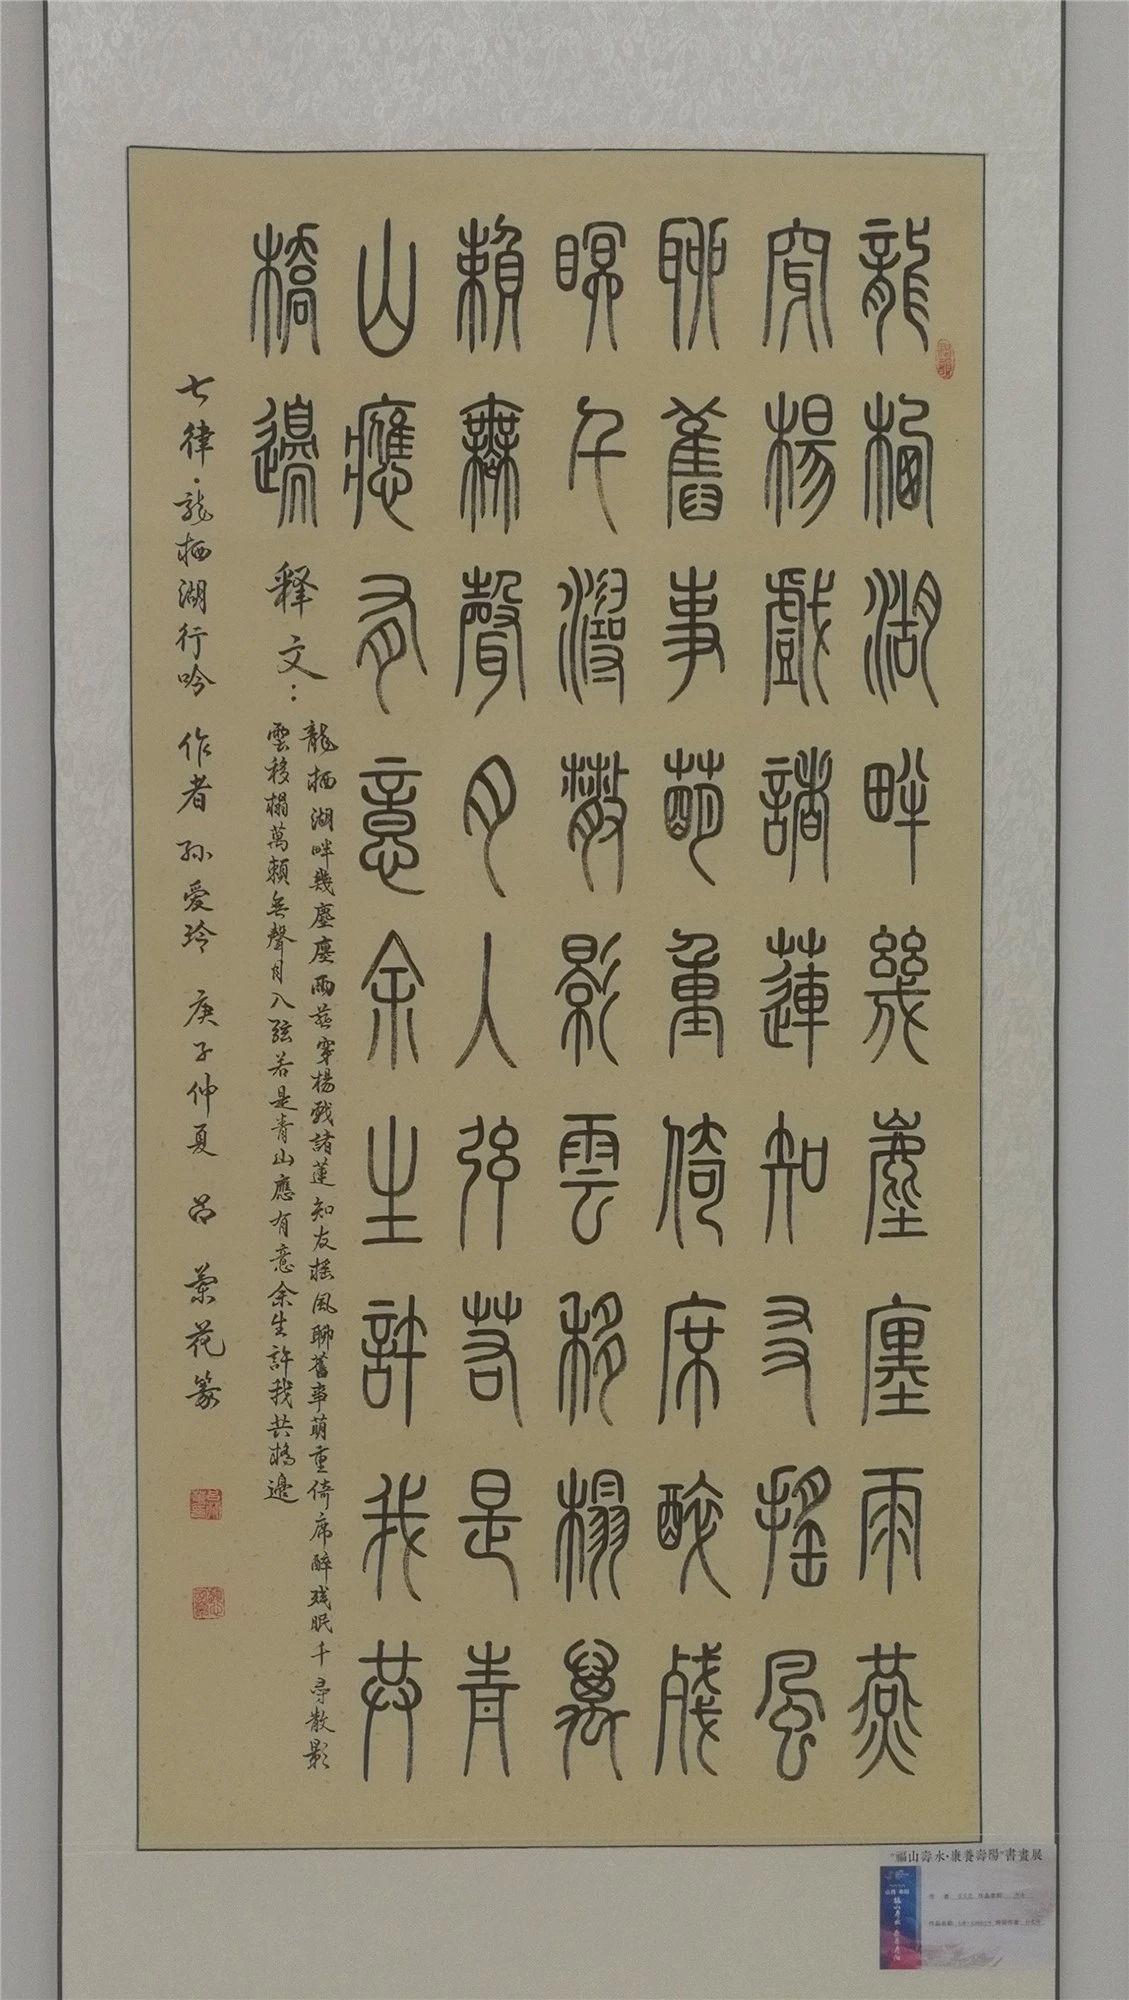 龍栖湖畔幾塵廛雨燕
穿楊戲諸蓮知友搖風
聊舊事萌重倚席醉殘
眠千潯散影雲移榻萬
賴無聲月入弦若是青
山應有意余生許我共
橋邊
释文：
龍栖湖畔幾塵廛雨燕穿楊戲諸蓮知友搖風聊舊事萌重倚席醉殘眠千尋散影
雲移榻萬賴無聲月入弦若是青山應有意余生許我共橋邊
七律·龍栖湖行吟 作者孙爱玲 庚子仲夏 吕蘭花篆
"福山壽水·康養壽陽"書畫展
作品名称